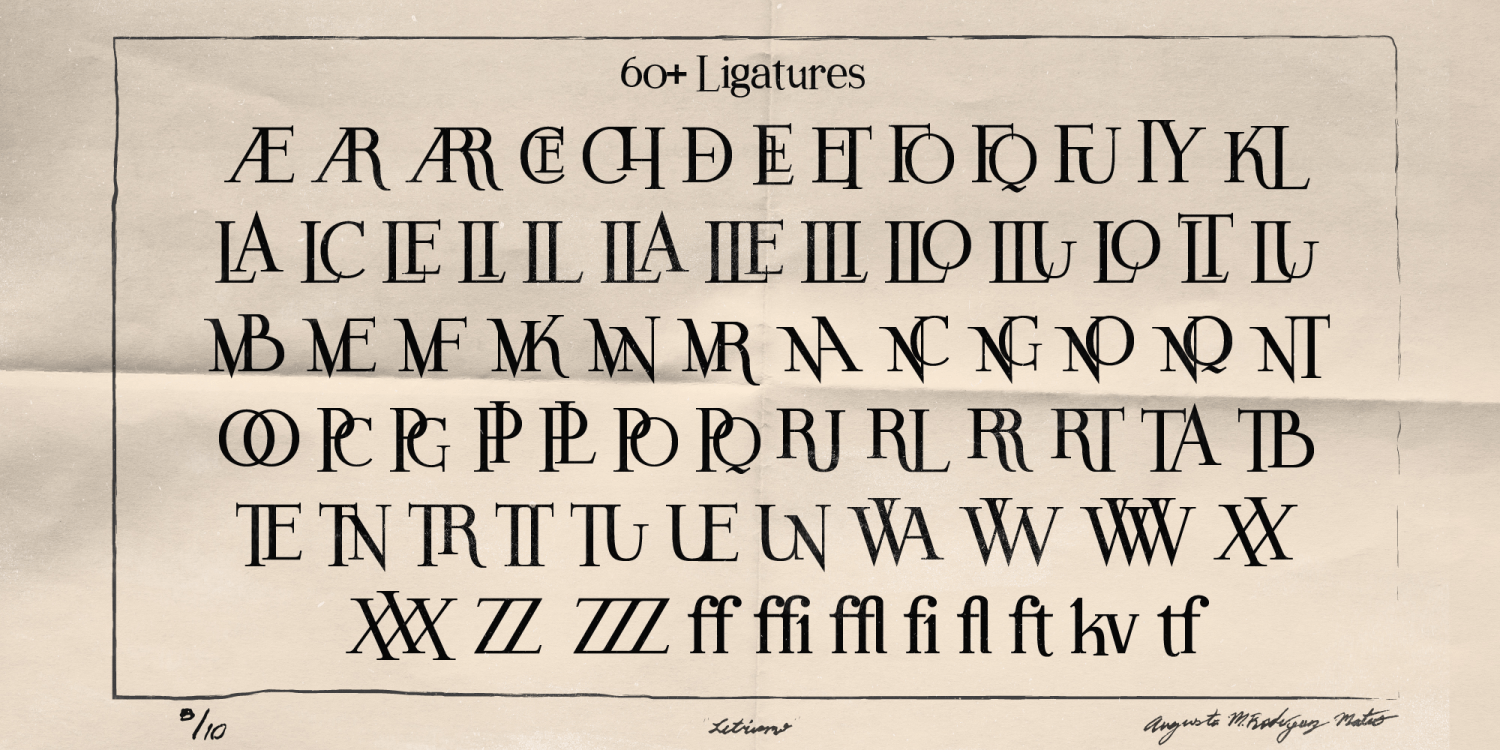 60+ Ligatures
Æ AR ARR CE CH DE EE ET FO FQ FU IY KL
LA LC LE LI LL LLA LLE LLI LLO LLU LO LT LU
MB ME MF MK MN MR NA NC NG NO NQ NT
OO PC PG PP PL PO PQ RJ RL RR RT TA TB
TE TN TR TT TU UE UN WA WW WWW XX
XXX ZZ ZZZ ff ffi ffl fi fl ft kv tf
/10
Augusto Mateo